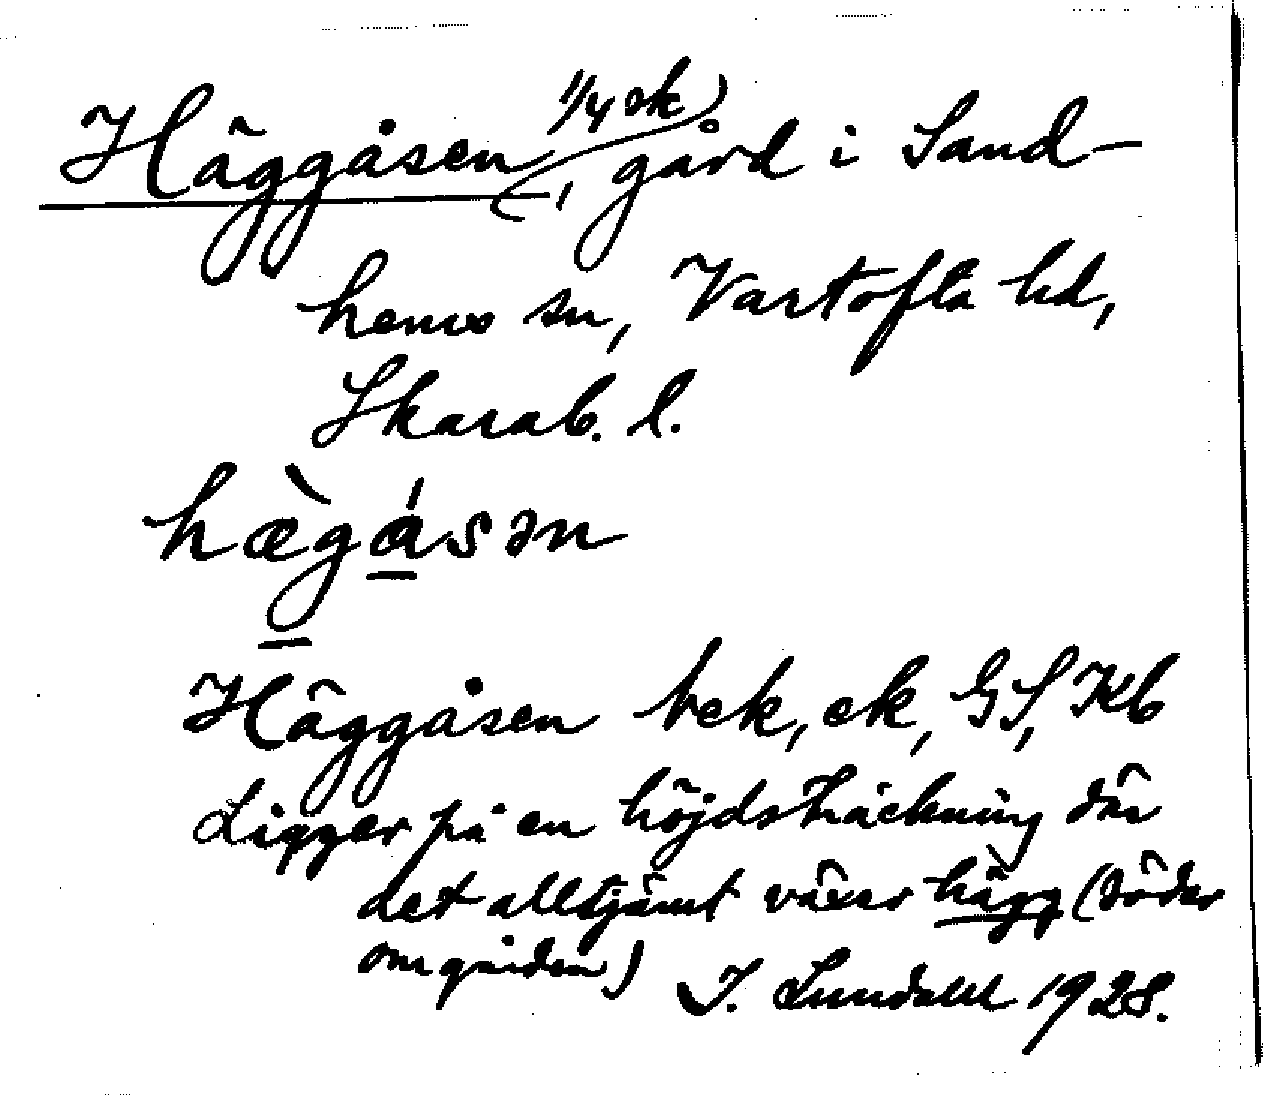 Häggåsen, (1/4 sk) gård i Sand-
hems sn, Vartofta hd,
Skarab. l.
hæ̀gásən
Häggåsen bek, ek, GS, Kb
Ligger på en höjdsträckning där
det alltjämt växer hägg (söder
om gården) I. Lundahl 1928.